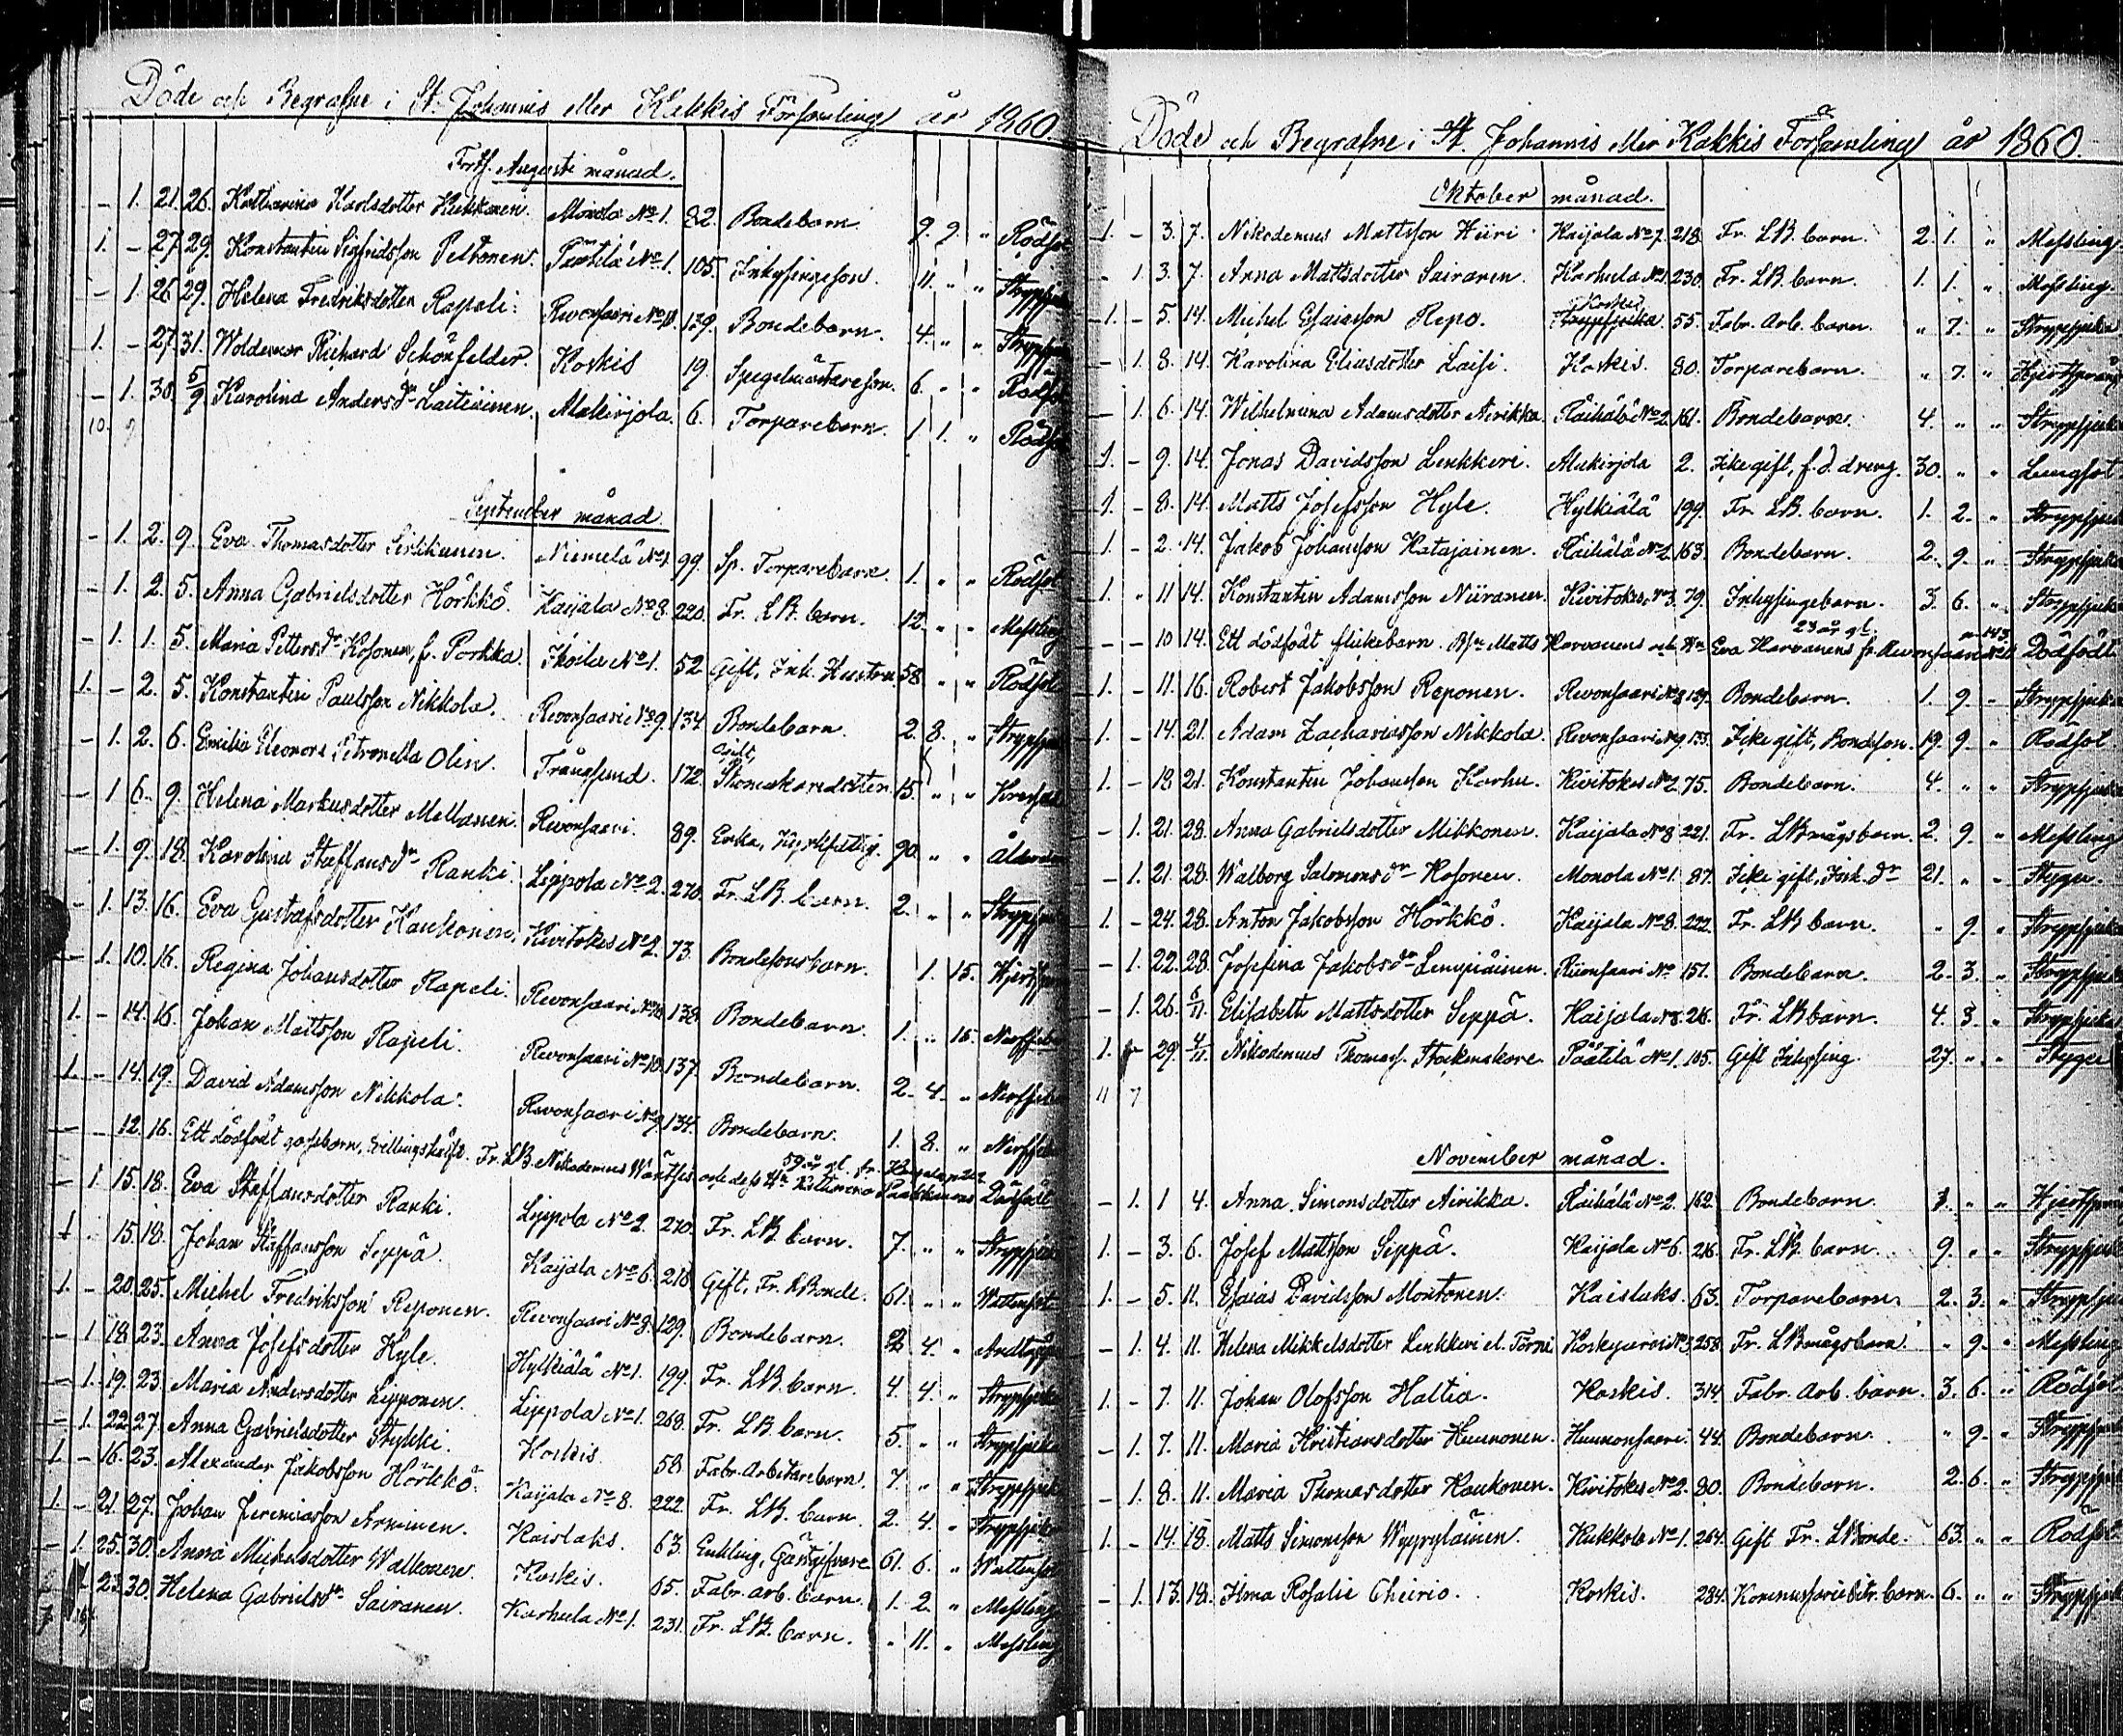 Döde och Begrafne i St. Johannis eller Kakkis Församling år 1860.
Forts. Augusti månad.
- 1. 21. 26. Katharina Karlsdotter Kukkonen. Monola No 1. 82. Bondebarn 9. 9. " Rödsot
1. - 27. 29. Konstantin Sigfridsson Peltonen. Päätilä No 1. 105. Inhysingeson. 11. " " Strypsjuka
- 1. 26. 29. Helena Fredriksdotter Rapeli. Revonsaari No 10. 139. Bondebarn. 4. " " Strypsjuka
1. - 27. 31. Woldemar Richard Schönfelder. Koskis 19. Spegelmästareson. 6. " " Rödsot
- 1. 30. 5/9. Karolina Anders dr Laitiainen. Alakirjola. 6. Torparebarn. 1. 1. " Rödsot
10 9
September månad
- 1. 2. 9. Eva Thomasdotter Niemelä No 1. 99. Sp. Torparebarn. 1. " " Rödsot
- 1. 2. 5. Anna Gabrielsdotter Hörkkö. Kaijala No 8. 220. Fr. LB. barn. 12. " " Messling
- 1. 1. 5. Maria Petters dr Kosonen, f. Porkka. No 1. 52. Gift, Inh. Hustru. 58 " " Rödsot
1. - 2. 5. Konstantin Paulsson Nikkola. Revonsaari No 9. 134. Bondebarn. 2. 8. " Strypsjuka
- 1. 2. 6. Emilia Eleonora Petronella Olin. Trångsund. 172. Skomakaredotter. 15. " "
- 1 6. 9. Helena Markusdotter Mellanen. Revonsaari. 89. Enka, 90. " " Ålderdom
- 1. 9. 18. Karolina Staffans dr Ranki. Lippola No 2. 270. Fr. LB. barn. 2. " " Strypsjuka
- 1. 13. 16. Eva Gustafsdotter Kaukonen. Kivitokis No 2. 73. Bondesonsbarn. 1. 15. Hjertsprång
- 1. 10. 16. Regina Johansdotter Rapeli. Revonsaari No 10. 138. Bondebarn. 1. " 15. Nerffeber
1. - 14. 16. Johan Mattsson Rapeli. Revonsaari No 10. 137. Bondebarn. 2. 4. " Nerffeber
1. - 14. 19. David Adamsson Nikkola. Revonsaari No 9. 134. Bondebarn. 1. 8. " Nerffeber
- - 12. 16. Ett dödfödt gossebarn, Fr. LB. Nikodemus och dess Hu Katharina Dödfödt
- 1 15. 18. Eva Staffansdotter Ranki. Lippola No 2. 270. Fr. LB. barn. 7. " " Strypsjuka
1 - 15. 18. Johan Staffansson Seppä. Kaijala No 6. 218. Gift, Fr. LBonde. 61. " " Wattensot
1. - 20. 25. Michel Fredriksson Reponen. Revonsaari No 8. 129. Bondebarn. 2. 4. " Andtäppa
- 1 18. 23. Anna Josefsdotter Hyle. Hylkiälä No 1. 199. Fr. LB. barn. 4. 4. " Strypsjuka
- 1. 19. 23. Maria Andersdotter Lipponen. Lippola No 1. 268. Fr. LB. barn. 5. " " Strypsjuka
- 1. 22. 27. Anna Gabrielsdotter Stykki. Koskis. 58. Fabr. Arbetarebarn. 7. " " Strypsjuka
1. - 16. 23. Alexander Jakobsson Hörkkö. Kaijala No 8. 222. Fr. LB. barn. 2. 4. " Strypsjuka
1. - 21. 27. Johan Jeremiasson Arminen. Kaislaks. 63. Enkling, Gästgifvare. 61. 6. " Wattensot
- 1. 25. 30. Anna Michelsdotter Walkonen. Koskis. 65. Fabr. arb. barn. 1. 2. " Messling
- 1 23. 30. Helena Gabriels dr Sairanen. Karhula No 1. 231. Fr. LB. barn. " 11. " Messling
Döde och Begrafne i St. Johannis eller Kakkis Församling år 1860.
Oktober månad.
1. - 3. 7. Nikodemus Mattsson Hiiri. Kaijala No 7. 218. Fr. LB. barn. 2. 1. " Messling
- 1. 3. 7. Anna Mattsdotter Sairanen. Karhula No 1. 230. Fr. LB. barn. 1. 1. " Messling.
1. - 5. 14. Michel Esaiasson Repo. Koskis 55. Fabr. Arb. barn. " 7. " Strypsjuka
- 1. 8. 14. Karolina Eliasdotter Laisi. Koskis. 80. Torparebarn. " 7. " Hjertsprång
- 1. 6. 14. Wilhelmina Adamsdotter Airikka. Räihälä No 2. 161. Bondebarn. 4. " " Strypsjuka
1. - 9. 14. Jonas Davidsson Lenkkeri. Alakirjola 2. Icke gift, f.d. dreng. 30. " " Lungsot
1. - 8. 14. Matts Josefsson Hyle. Hylkiälä 199. Fr. LB. barn. 1. 2. " Strypsjuka
1. - 2. 14. Jakob Johansson Katajainen. Räihälä No 2. 163. Bondebarn. 2. 9. " Strypsjuka
1. " 11 14. Konstantin Adamsson Niiranen. Kivitokis No 3. 79. Inhysingebarn. 3. 6. " Strypsjuka
- - 10 14. Ett dödfödt flickebarn. Bdn Matts Harvanens och Hu Eva Harvanens fr. Revonsaari 23 år gl. Dödfödt
1. - 11. 16. Robert Jakobsson Reponen. Revonsaari No 8 129. Bondebarn. 1. 9. " Strypsjuka
1. - 14. 21. Adam Zachariasson Nikkola. Revonsaari No 9. 133. Icke gift, Bondeson. 19. 9. " Rödsot
1. - 18 21. Konstantin Johansson Karhu. Kivitokis No 2. 75. Bondebarn. 4. " " Strypsjuka
- 1. 21. 28. Anna Gabrielsdotter Mikkonen. Kaijala No 8 221. Fr. LBmågsbarn. 2. 9. " Messling
- 1. 21. 28. Walborg Salomons dr Kosonen. Monola No 1. 87. Icke gift, Inh. dr 21. " " Stygn.
1. - 24. 28. Anton Jakobsson Hörkkö. Kaijala No 8. 222. Fr. LB barn. " 9. " Strypsjuka
- 1. 22. 28. Josefina Jakobs dr Lempiäinen. Revonsaari No 151. Bondebarn. 2. 3. " Strypsjuka
- 1. 26. 6/11. Elisabeth Mattsdotter Seppä. Kaijala No 8. 216. Fr. LB barn. 4. 3. " Strypsjuka
1. - 29. 4/11. Nikodemus Thomass. Päätilä No 1. 105. Gift Inhysing. 27. " " Stygn
11 7
November månad.
- 1. 1 4. Anna Simonsdotter Airikka. Räihälä No 2. 162. Bondebarn. 1. " " Hjertsprång
1. - 3. 6. Josef Mattsson Seppä. Kaijala No 6. 216. Fr. LB. barn. 9. " " Strypsjuka
1. - 5. 11. Esaias Davidsson Montonen. Kaislaks. 63. Torparebarn. 2. 3. " Strypsjuka
- 1. 4. 11. Helena Mikkelsdotter Lenkkeri el. Törni Koskijärvi No 3 258. Fr. LBmågsbarn. " 9. " Messling
1. - 7. 11. Johan Olofsson Haltia. Koskis. 314. Fabr. Arb. barn. 3. 6. " Rödsot
- 1. 7. 11. Maria Kristiansdotter Huunonen. Huunonsaari. 44. Bondebarn. " 9. " Strypsjuka
- 1. 8. 11. Maria Thomasdotter Kaukonen. Kivitokis No 2. 80. Bondebarn. 2. 6. " Strypsjuka
1. - 14. 18. Matts Simonsson Wyyryläinen. Kukkola No 1. 264. Gift Fr. LBonde. 63. " " Rödsot
- 1. 13. 18. Ilma Rosalie Cheirio. Koskis. 284. barn. 6. " " Strypsjuka